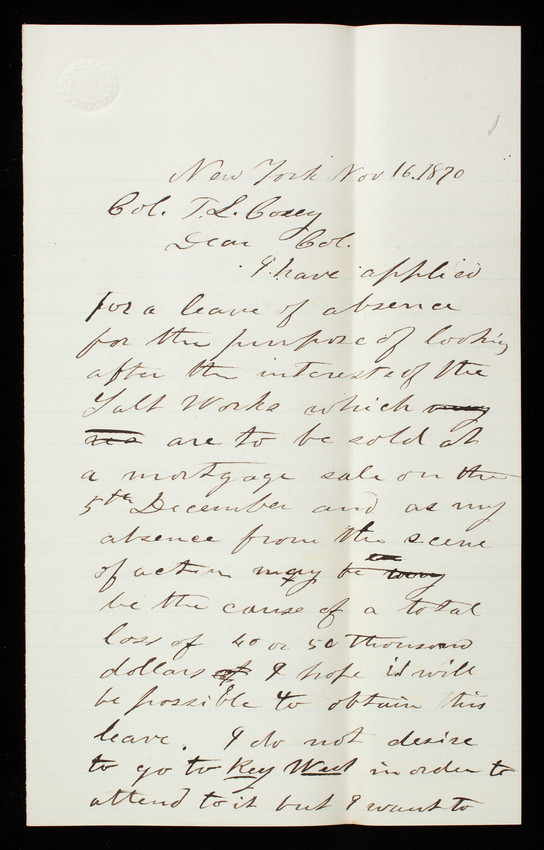 New York Nov 16. 1870
Col. T. L. Casey
Dear Col.
I have applied
for a leave of absence
for the purpose of looking
after the interests of the
Salt Works which
are to be sold at
a mortgage sale on the
5th December and as my
absence from the scene
of action may be
be the cause of a total
loss of 40 or 50 thousand
dollars I hope it will
be possible to obtain this
leave. I do not desire
to go to Key West in order to
attend to it but I want to